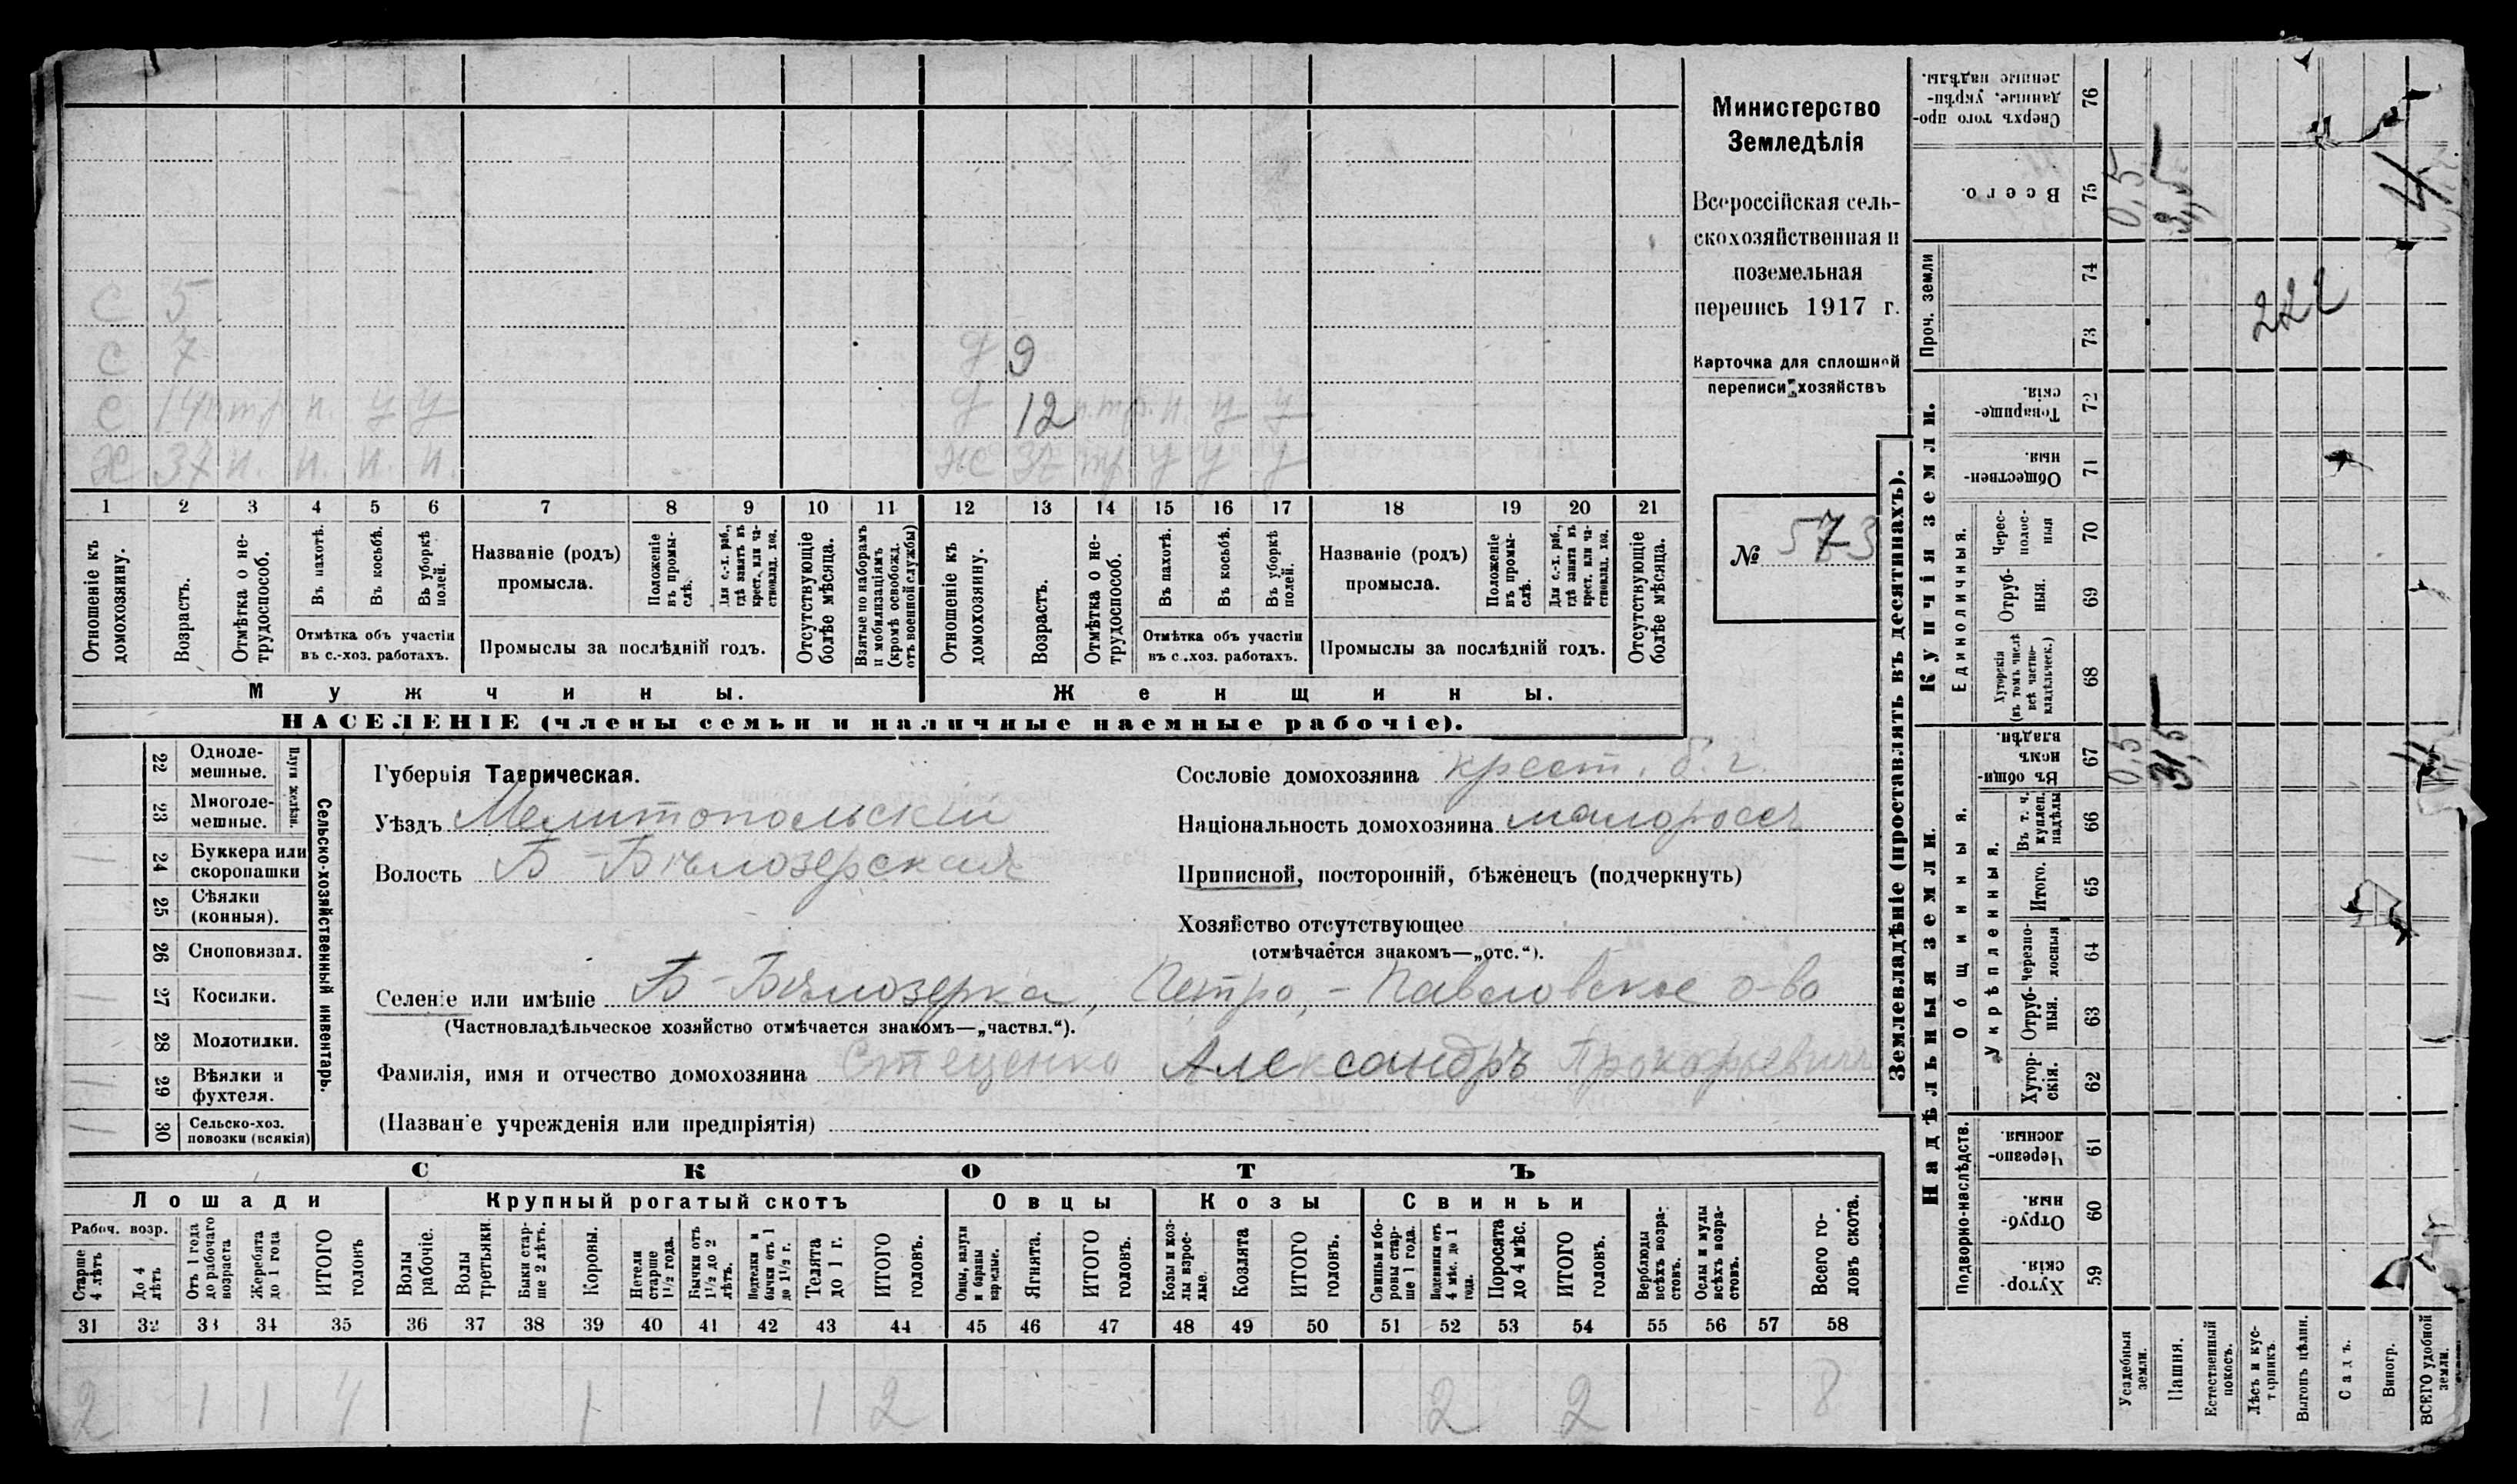 С 5
С 7 д 9
С 14 п.тр п. у у д 12 п.тр. п. у у
Х 37 п. п. п. п. ж 37 тр у у у
1 2 3 4 5 6 7 8 9 10 11 12 13 14 15 16 17 18 19 20 21
Отношеніе къ домохозяину.
Возрастъ.
Отмѣтка о не-
трудоспособ.
Въ пахотѣ.
Въ косьбѣ.
Въ уборкѣ полей.
Отмѣтка объ участіи
въ с.-хоз. работахъ.
Названіе (родъ)
промысла.
Положеніе въ промы-
слѣ.
Для с.-х. раб.,
гдѣ занятъ въ
крест. или ча-
стновлад. хоз.
Промыслы за послѣдній годъ.
Отсутствующіе болѣе мѣсяца.
Взятые по наборамъ
и мобилизаціямъ
(кромѣ освобожд.
отъ военной службы)
Отношеніе къ домохозяину.
Возрастъ.
Отмѣтка о не-
трудоспособ.
Въ пахотѣ.
Въ косьбѣ.
Въ уборкѣ полей.
Отмѣтка объ участіи
въ с.-хоз. работахъ.
Названіе (родъ)
промысла.
Положеніе въ промы-
слѣ.
Для с.-х. раб.,
гдѣ занята въ
крест. или ча-
стновлад. хоз.
Промыслы за послѣдній годъ.
Отсутствующіе болѣе мѣсяца.
Мужчины. Женщины.
НАСЕЛЕНІЕ (члены семьи и наличные наемные рабочіе).
Министерство
Земледѣлія
Всероссійская сель-
скохозяйственная и
поземельная
перепись 1917 г.
Карточка для сплошной
переписи хозяйствъ
№ 573
22 Одноле-
мешные.
23 Многоле-
мешные.
Плуги желѣзн.
24 Буккера или
скоропашки
25 Сѣялки
(конныя).
26 Сноповязал.
27 Косилки.
28 Молотилки.
29 Вѣялки и
фухтеля.
30 Сельско-хоз.
повозки (всякія)
Сельско-хозяйственный инвентарь.
Губернія Таврическая.
Уѣздъ Мелитопольскій
Волость Б-Бѣлозерская
Сословіе домохозяина крест. б. г.
Національность домохозяина малороссъ
Приписной, посторонній, бѣженецъ (подчеркнуть)
Хозяйство отсутствующее
(отмѣчается знакомъ—„отс.“).
Селеніе или имѣніе Б-Бѣлозерка, Петро,-Павловское о-во
(Частновладѣльческое хозяйство отмѣчается знакомъ—„частвл.“).
Фамилія, имя и отчество домохозяина Стеценко Александръ Прокофьевичъ
(Названіе учрежденія или предпріятія)
СКОТЪ
Лошади Крупный рогатый скотъ Овцы Козы Свиньи
Рабоч. возр.
Старше
4 лѣтъ
До 4
лѣтъ
Отъ 1 года
до рабочаго
возраста
Жеребята
до 1 года
ИТОГО
головъ
Волы
рабочіе.
Волы
третьяки.
Быки стар-
ше 2 лѣтъ.
Коровы.
Нетели
старше
1½ года.
Бычки отъ
1½ до 2
лѣтъ.
Нетелки и
бычки отъ 1
до 1½ г.
Телята
до 1 г.
ИТОГО
головъ.
Овцы, валухи
и бараны
взрослые.
Ягнята.
ИТОГО
головъ.
Козы и коз-
лы взрос-
лые.
Козлята
ИТОГО
головъ.
Свиньи и бо-
ровы стар-
ше 1 года.
Подсвинки отъ
4 мѣс. до 1
года.
Поросята
до 4 мѣс.
ИТОГО
головъ.
Верблюды
всѣхъ возра-
стовъ.
Ослы и мулы
всѣхъ возра-
стовъ.
Всего го-
ловъ скота.
31 32 33 34 35 36 37 38 39 40 41 42 43 44 45 46 47 48 49 50 51 52 53 54 55 56 57 58
2 1 1 4 1 1 2 2 2 8
Землевладѣніе (проставлять въ десятинахъ).
Купчія земли.
Надѣльныя земли.
Сверхъ того про-
данные, укрѣп-
ленные надѣлы. 76
Всего. 75 0,5 3,5 4
Проч. земли 74
73
222
Товарище-
скія. 72
Обществен-
ныя. 71
Единоличныя.
Черес-
полос-
ныя 70
Отруб-
ныя. 69
Хуторскія
(въ томъ числѣ
всѣ частно-
владѣльческ.) 68
Общинныя.
Въ общи-
номъ
владѣн. 67 0,5 3,5 4
Укрѣпленныя.
Въ т. ч.
куплен.
надѣлы 66
Итого. 65
Черезпо-
лосныя 64
Отруб-
ныя. 63
Хутор-
скія. 62
Подворно-наслѣдств.
Черезпо-
лосныя. 61
Отруб-
ныя. 60
Хутор-
скія. 59
Усадебныя
земли.
Пашня.
Естественный
покосъ.
Лѣсъ и кус-
тарникъ.
Выгонъ цѣлин.
Садъ.
Виногр.
ВСЕГО удобной
земли.